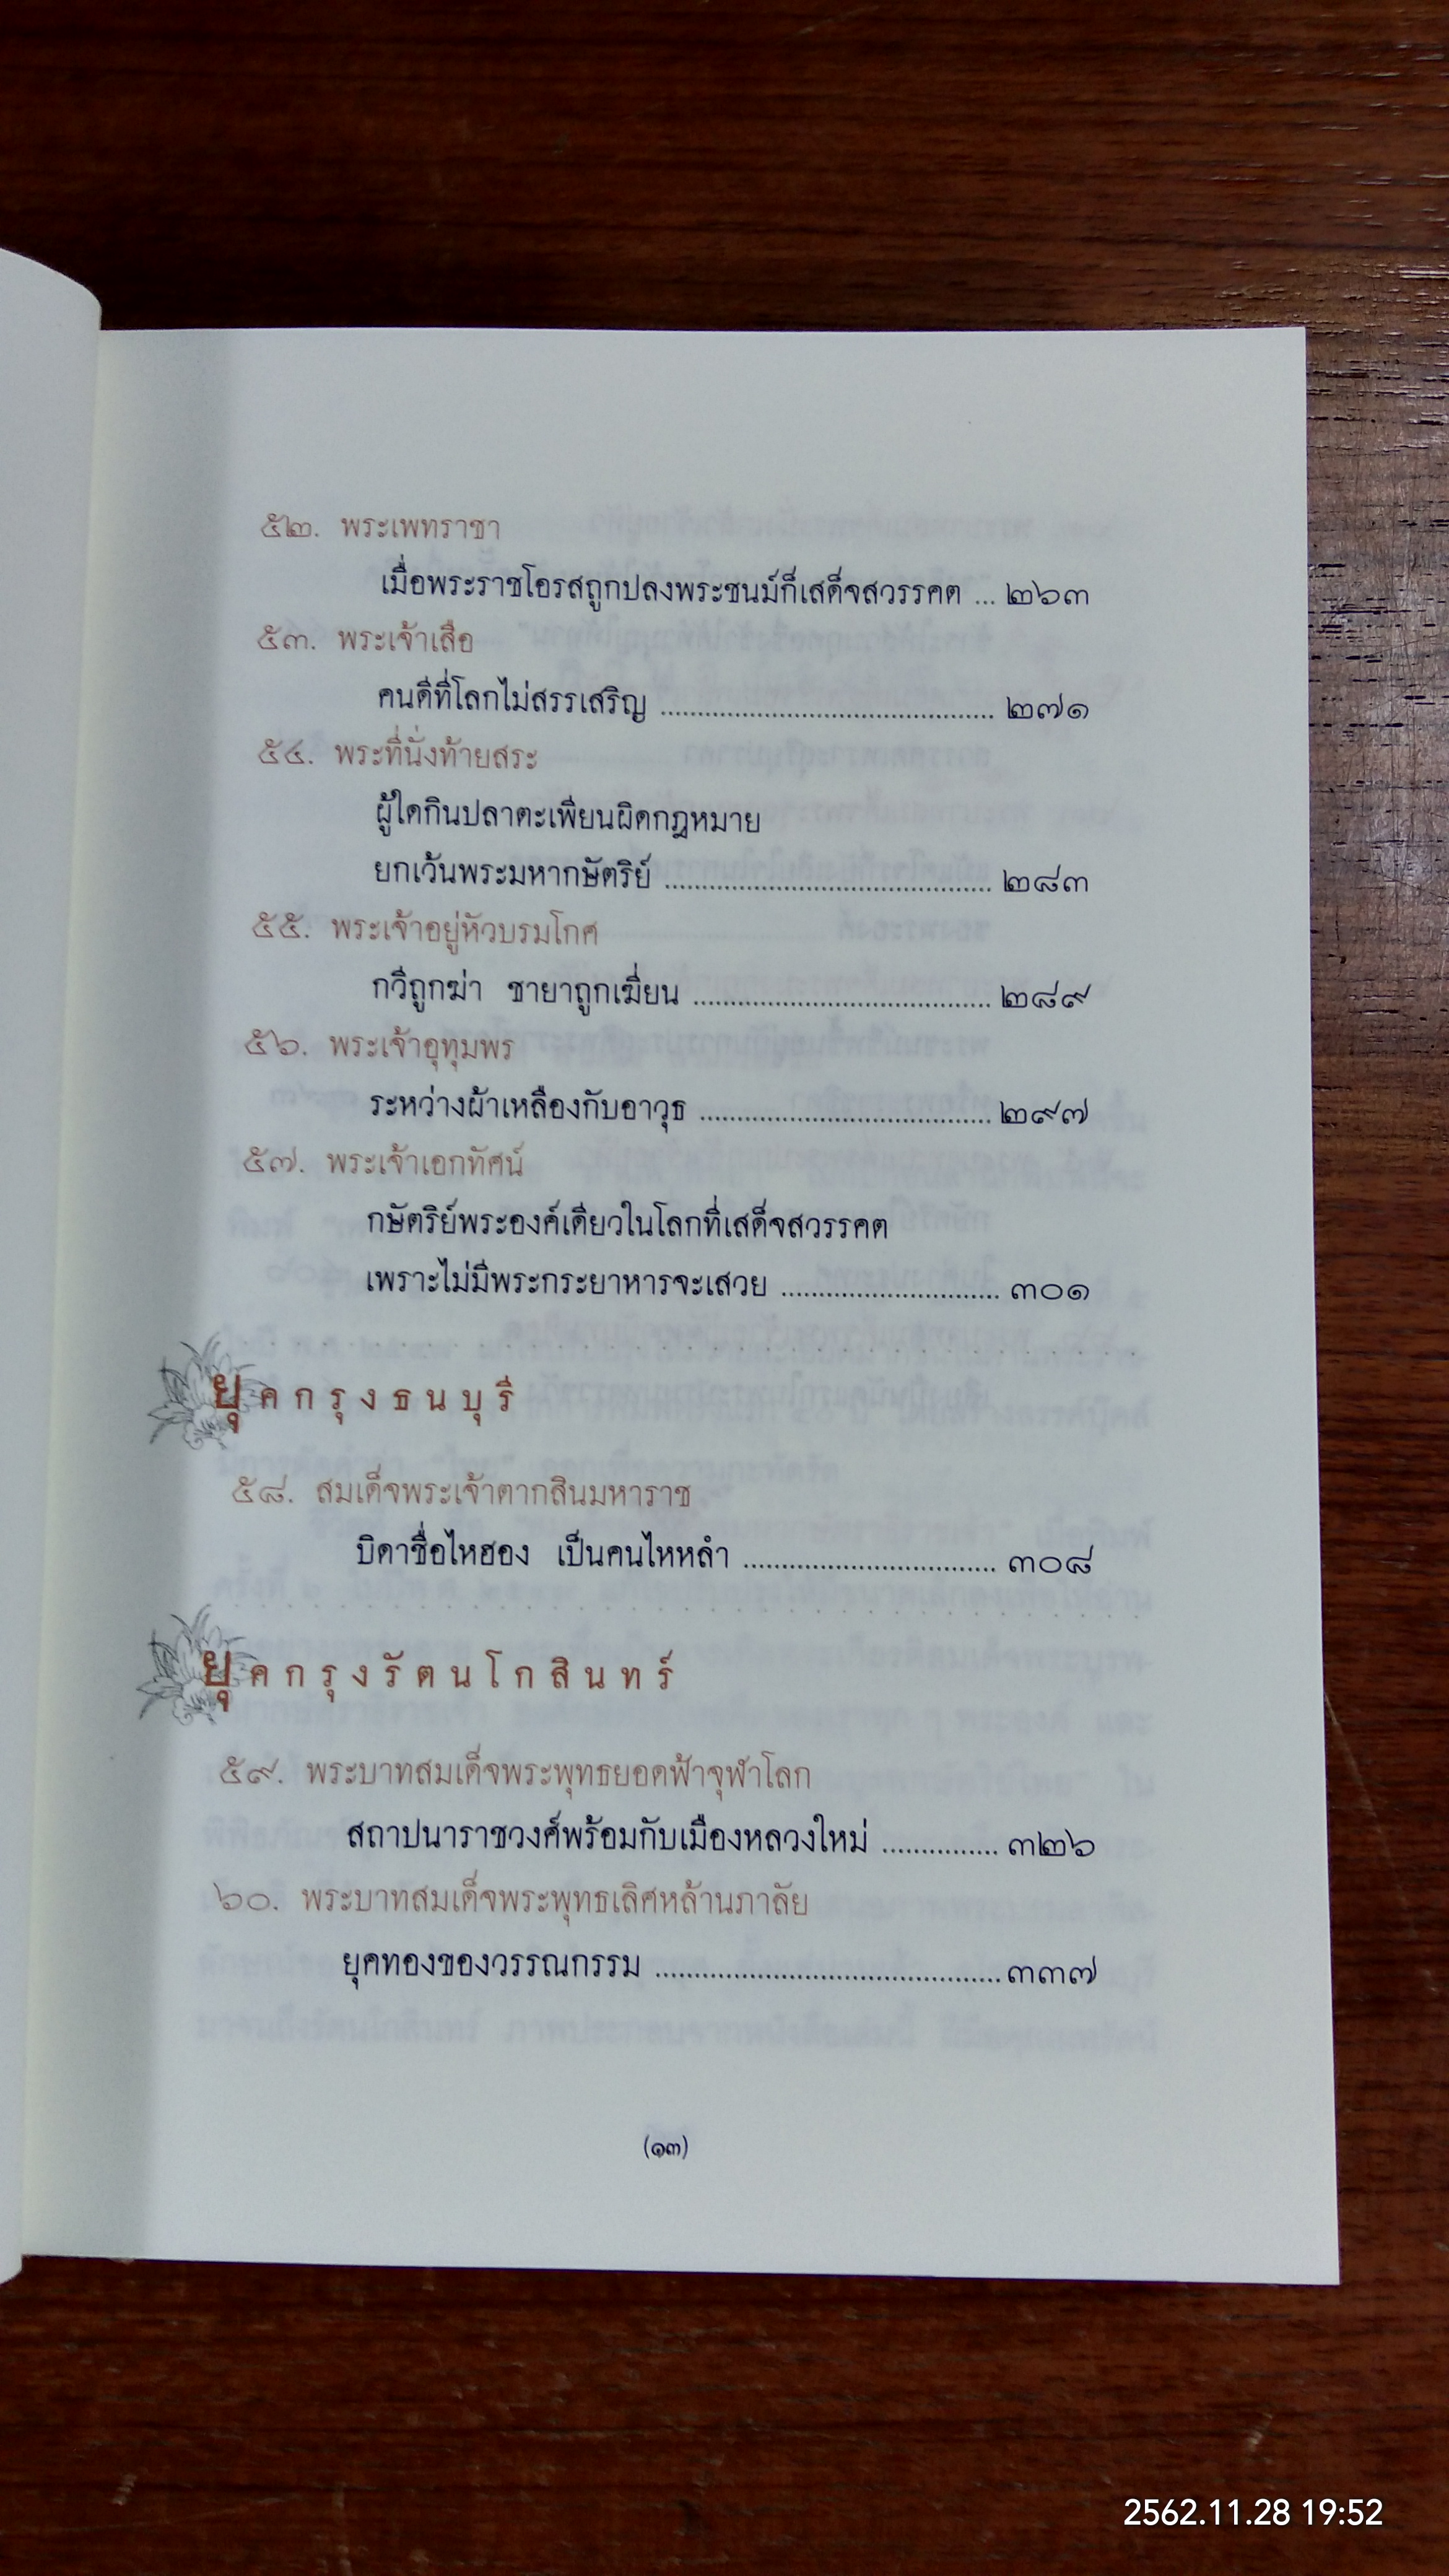 ๕๒. พระเพทราชา
เมื่อพระราชโอรสถูกปลงพระชนม์ก็เสด็จสวรรคต ... ๒๖๓
๕๓. พระเจ้าเสือ
คนดีที่โลกไม่สรรเสริญ ............................................. ๒๗๑
๕๔. พระที่นั่งท้ายสระ
ผู้ใดกินปลาตะเพียนผิดกฎหมาย
ยกเว้นพระมหากษัตริย์ ............................................ ๒๘๓
๕๕. พระเจ้าอยู่หัวบรมโกศ
กวีถูกฆ่า ชายาถูกเฆี่ยน ........................................ ๒๘๙
๕๖. พระเจ้าอุทุมพร
ระหว่างผ้าเหลืองกับอาวุธ ....................................... ๒๙๗
๕๗. พระเจ้าเอกทัศน์
กษัตริย์พระองค์เดียวในโลกที่เสด็จสวรรคต
เพราะไม่มีพระกระยาหารจะเสวย ............................. ๓๐๑
ยุคกรุงธนบุรี
๕๘. สมเด็จพระเจ้าตากสินมหาราช
บิดาชื่อไหฮอง เป็นคนไหหลำ .................................. ๓๐๘
ยุคกรุงรัตนโกสินทร์
๕๙. พระบาทสมเด็จพระพุทธยอดฟ้าจุฬาโลก
สถาปนาราชวงศ์พร้อมกับเมืองหลวงใหม่ ............... ๓๒๖
๖๐. พระบาทสมเด็จพระพุทธเลิศหล้านภาลัย
ยุคทองของวรรณกรรม ..............................................๓๓๗
(๑๓)
2562.11.28 19:52